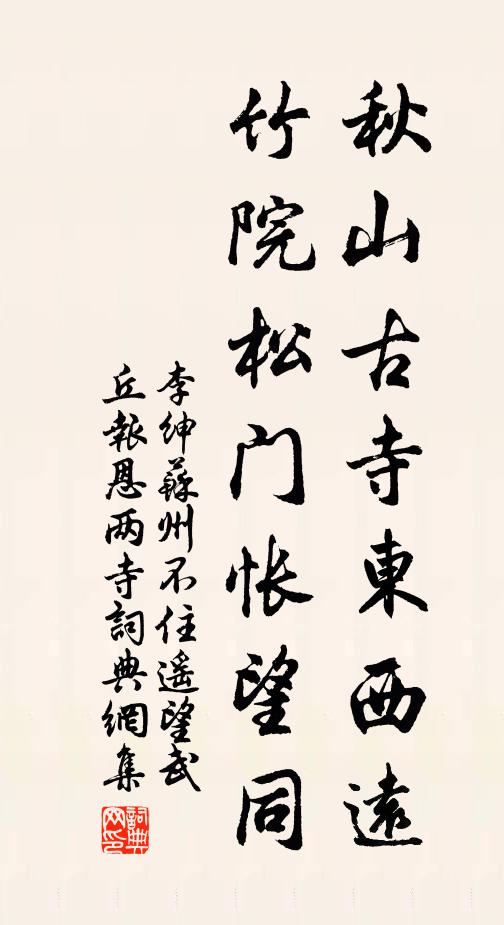 秋山古寺東西遠
竹院松门怅望同
李绅蘇州不住遥望武
丘報恩两寺詞典網集
詞典网印